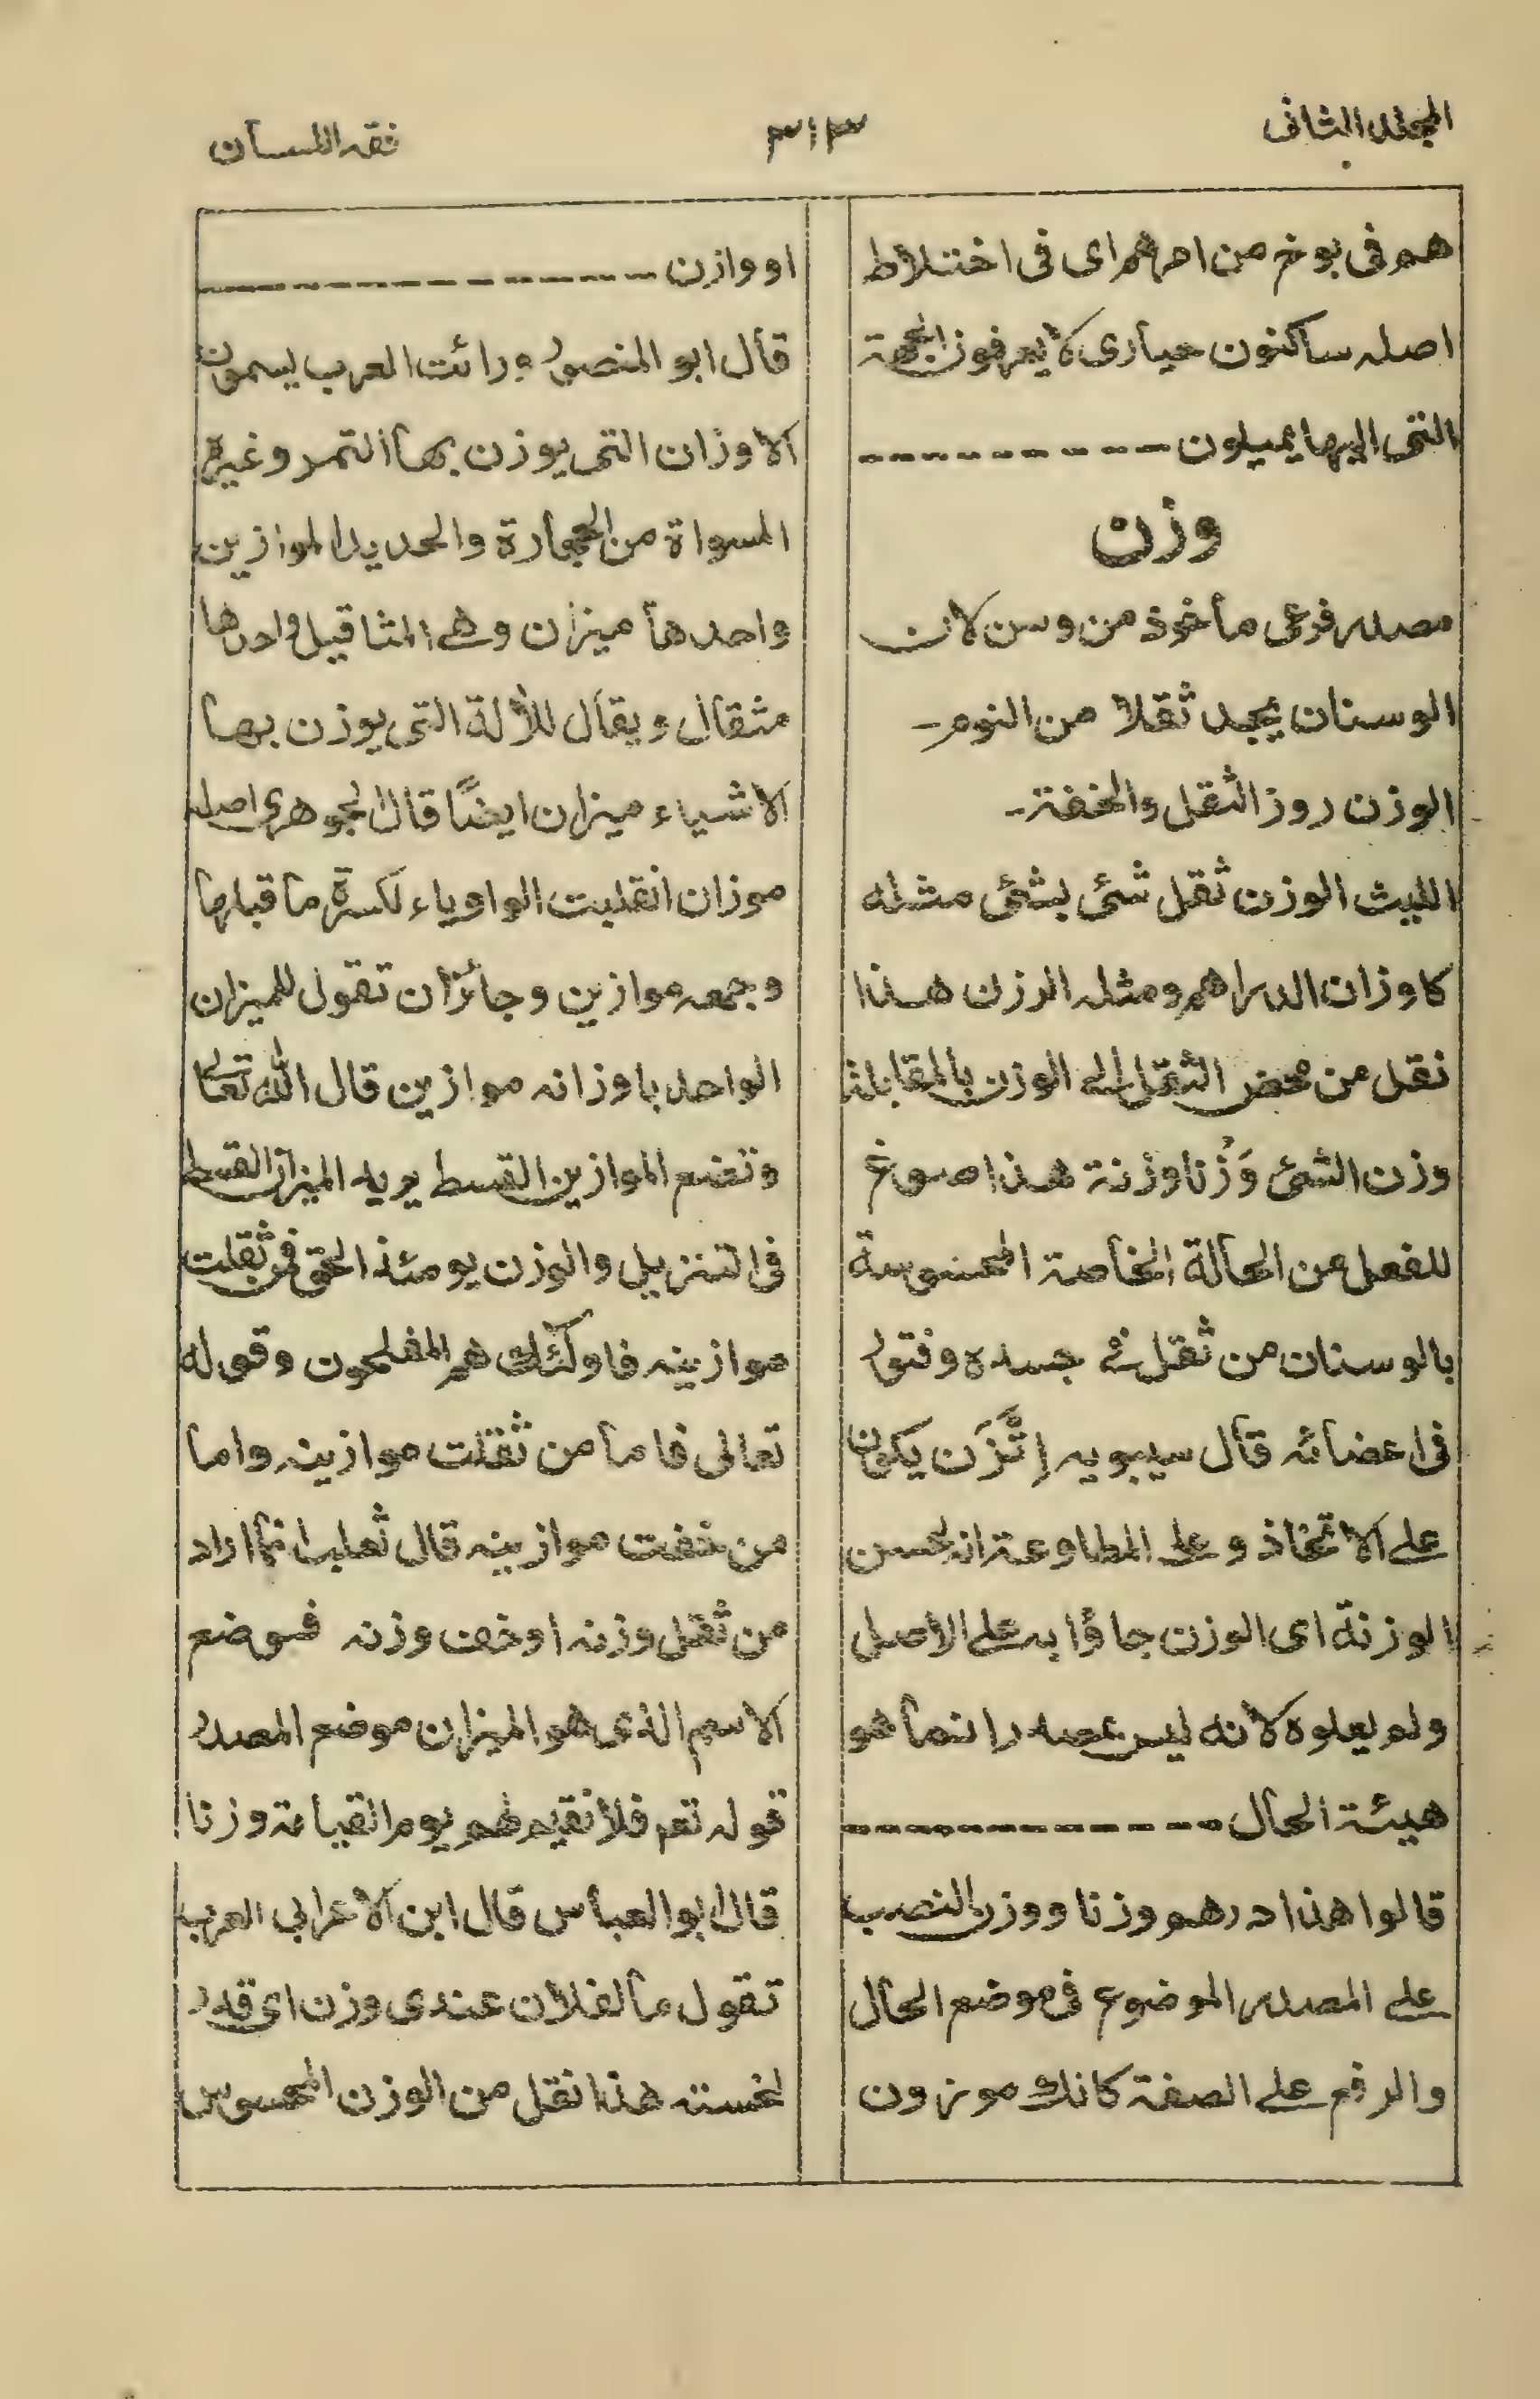 المجلد الثانی
۳۱۳
فقه اللسان
هم فی بوخ من امرهم ای فی اختلاط
اصله ساکنون حیاری لا یعرفون الجهة
التی الیها یمیلون
وزن
مصدر فرعی مأخوذ من وسن لان
الوسنان یجد ثقلا من النوم۔
الوزن روز الثقل والخفة۔
اللیث الوزن ثقل شئی بشئی مثله
کاوزان الدراهم ومثله الرزن هذا
نقل من محض الثقل الی الوزن بالمقابلة
وزن الشئی وَزْنا وزنة هذا صوغ
للفعل من الحالة الخاصة المحسوسة
بالوسنان من ثقل فی جسده وفتور
فی اعضائه قال سیبویه اِتَّزَن یکون
علی الاتخاذ وعلی المطاوعة انه لحسن
الوزنة ای الوزن جاؤا به علی الاصل
ولم یعلوه لانه لیس بمصدر انما هو
هیئة الحال
قالوا هذا درهم وزنا ووزن النصب
علی المصدر الموضوع فی موضع الحال
والرفع علی الصفة کانك موزون
او وازن
قال ابو المنصور ورائت العرب یسمون
الاوزان التی یوزن بها التمر وغیره
المسواة من الحجارة والحدید الموازین
واحدها میزان وهی المثاقیل واحدها
مثقال ویقال للألة التی یوزن بها
الاشیاء میزان ایضًا قال الجوهری اصله
موزان انقلبت الواو یاء لکسرة ما قبلها
وجمعه موازین وجائز ان تقول للمیزان
الواحد باوزانه موازین قال الله تعالی
وتضع الموازین القسط یرید المیزان القسط
فی التنزیل والوزن یومئذ الحق فمن ثقلت
موازینه فاولئك هم المفلحون وقوله
تعالی فاما من ثقلت موازینه واما
من خفت موازینه قال ثعلب انما اراد
من ثقل وزنه او خف وزنه فوضع
الاسم الذی هو المیزان موضع المصدر
قوله تعم فلا نقیم لهم یوم القیامة وزنا
قال ابو العباس قال ابن الاعرابی العرب
تقول ما لفلان عندی وزن ای قدر
لخسته هذا نقل من الوزن المحسوس